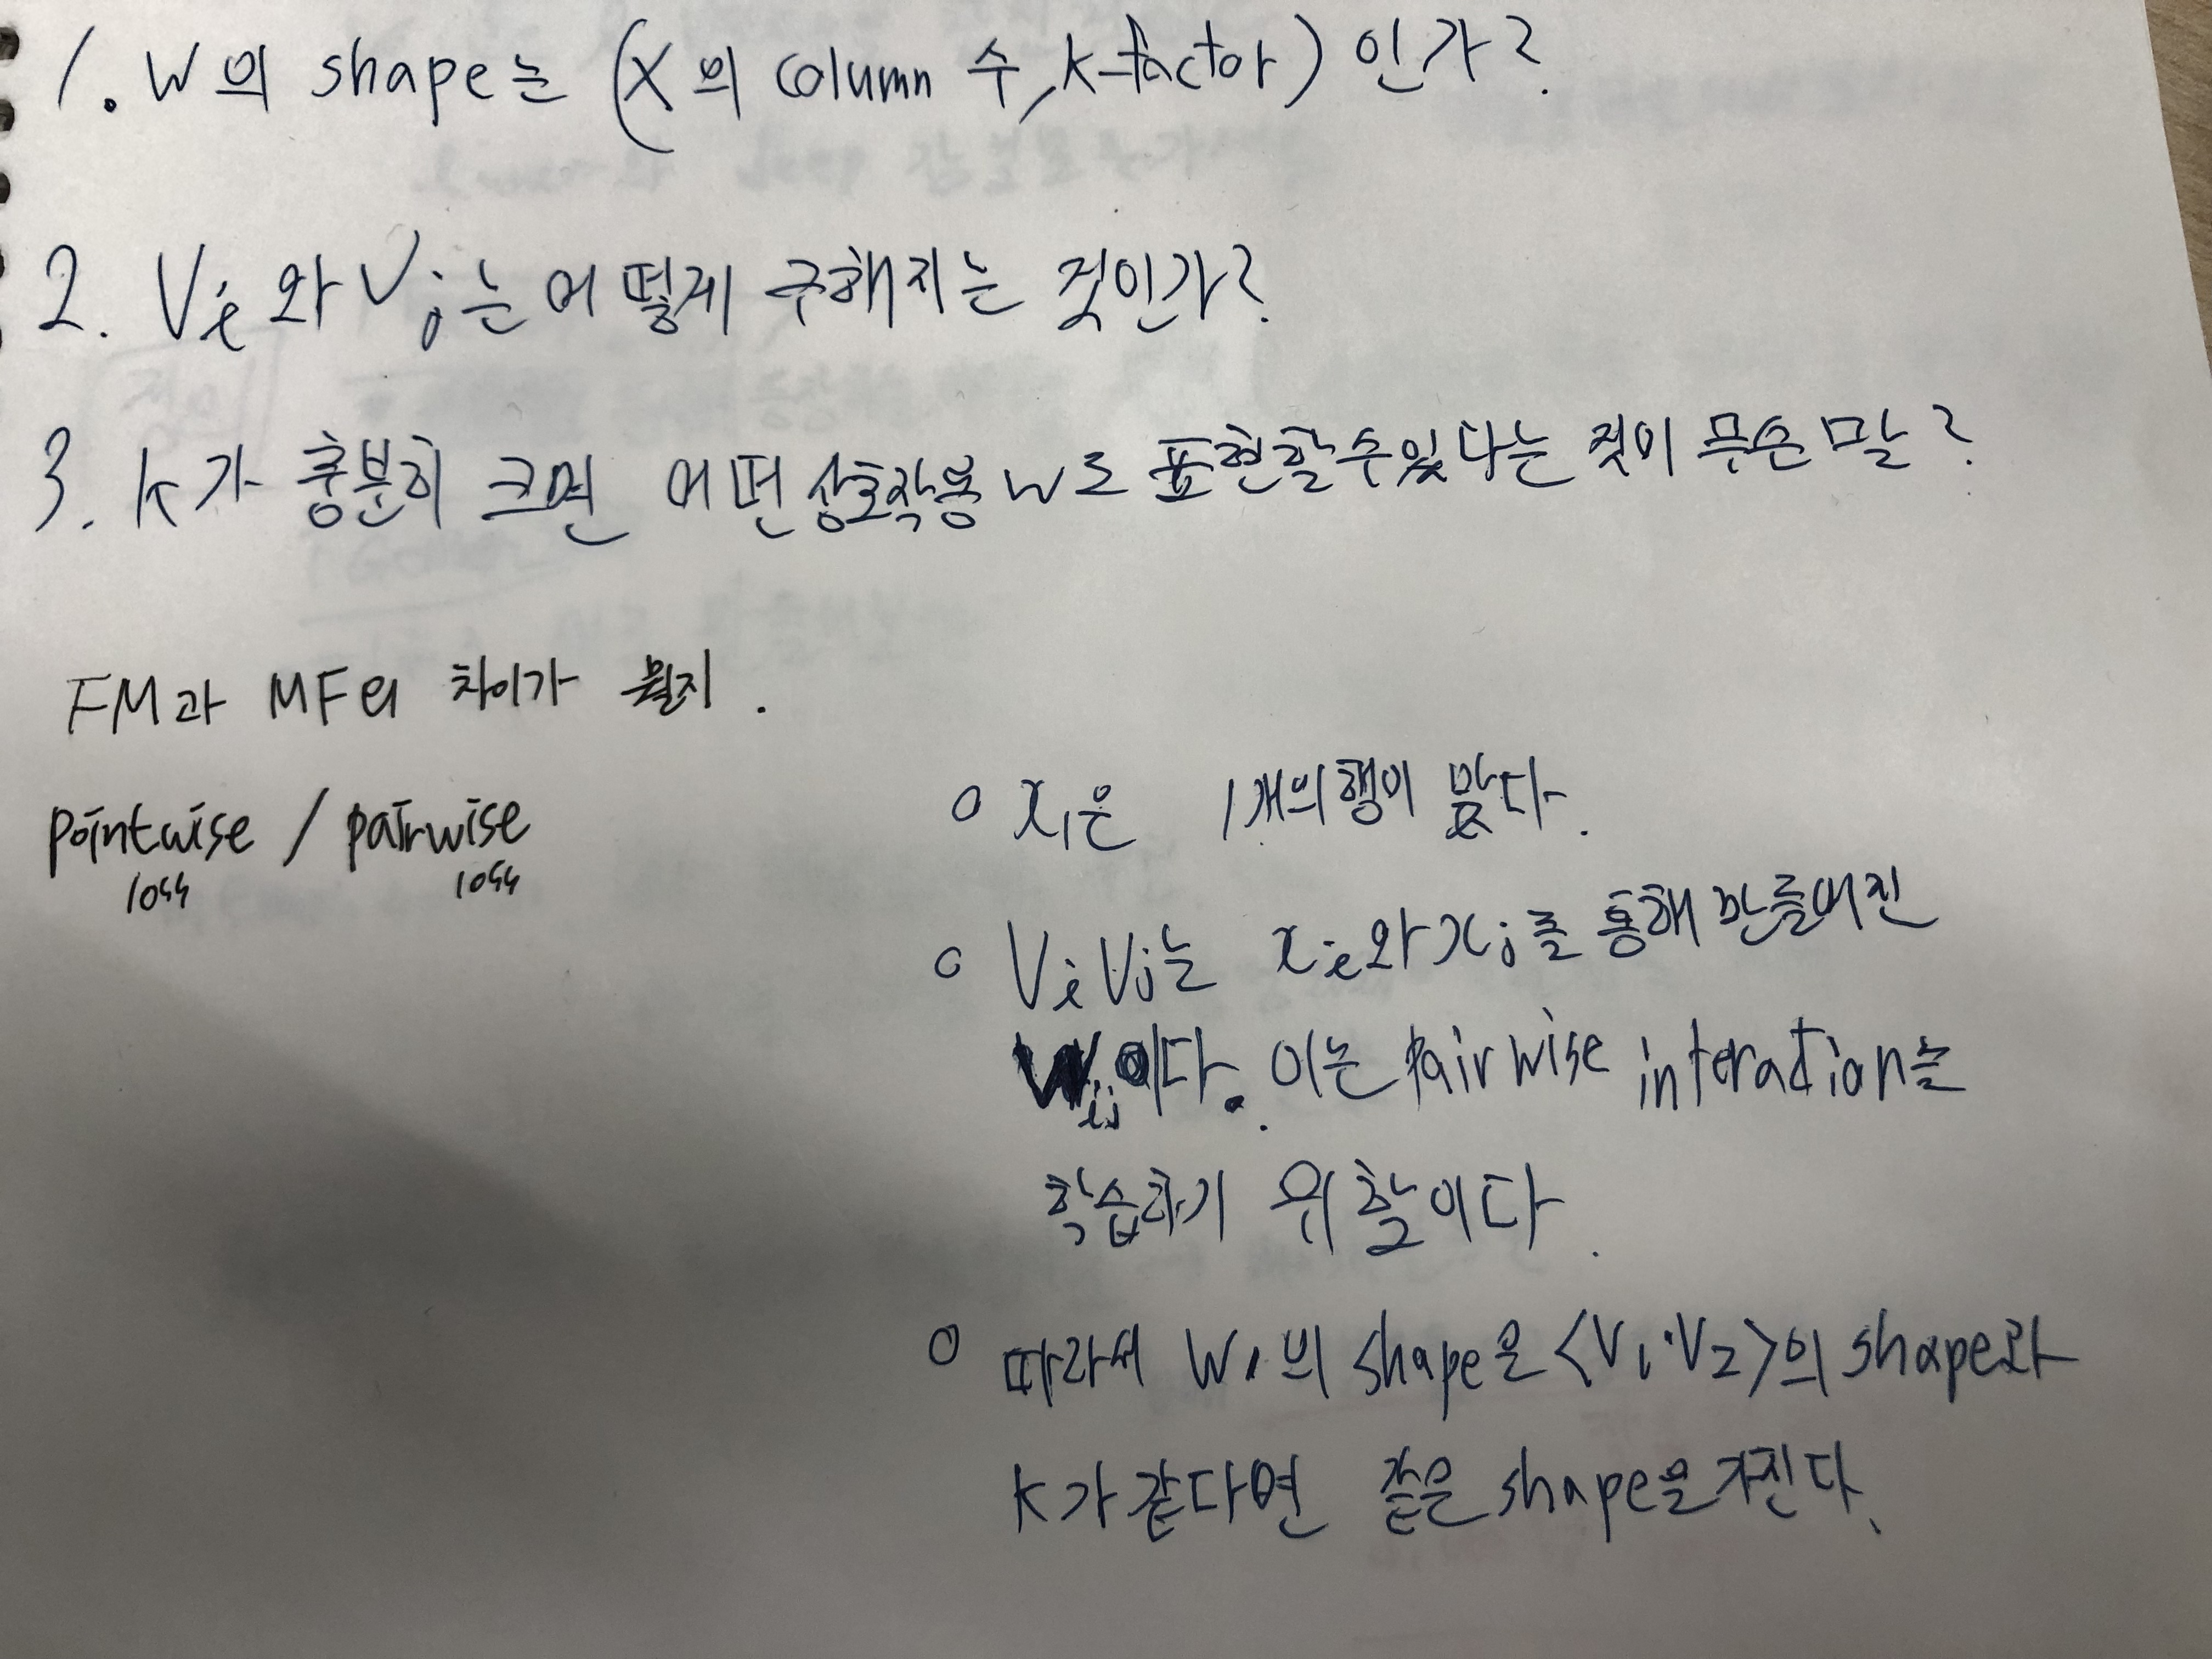 1. W의 shape는 (X의 column 수, K-factor) 인가?
2. Vi와 Vj는 어떻게 구해지는 것인가?
3. K가 충분히 크면 어떤 상호작용 W도 표현할 수 있다는 것이 무슨 말?
FM과 MF의 차이가 뭘지.
pointwise / pairwise
loss loss
o x₁은 1개의 행이 맞다.
o Vi Vj는 xi와 xj를 통해 만들어진
Wij이다. 이는 pairwise interation을
학습하기 위함이다.
o 따라서 W₁의 shape은 <V₁·V₂>의 shape과
K가 같다면 같은 shape을 가진다.